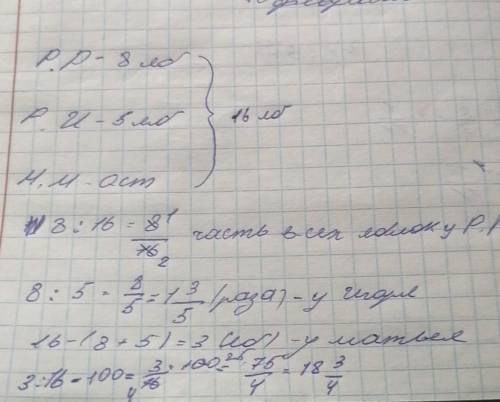 Р.Р - 8 яб
Р.И - 5 яб
Н.М - ост
16 яб
8 : 16 = 8/16 1/2 часть всех яблок у Р.Р
8 : 5 = 8/5 = 1 3/5 (раза) - у Игоря
16 - (8 + 5) = 3 (яб) - у Матвея
3 : 16 · 100 = 3/16 · 100 = 75/4 = 18 3/4